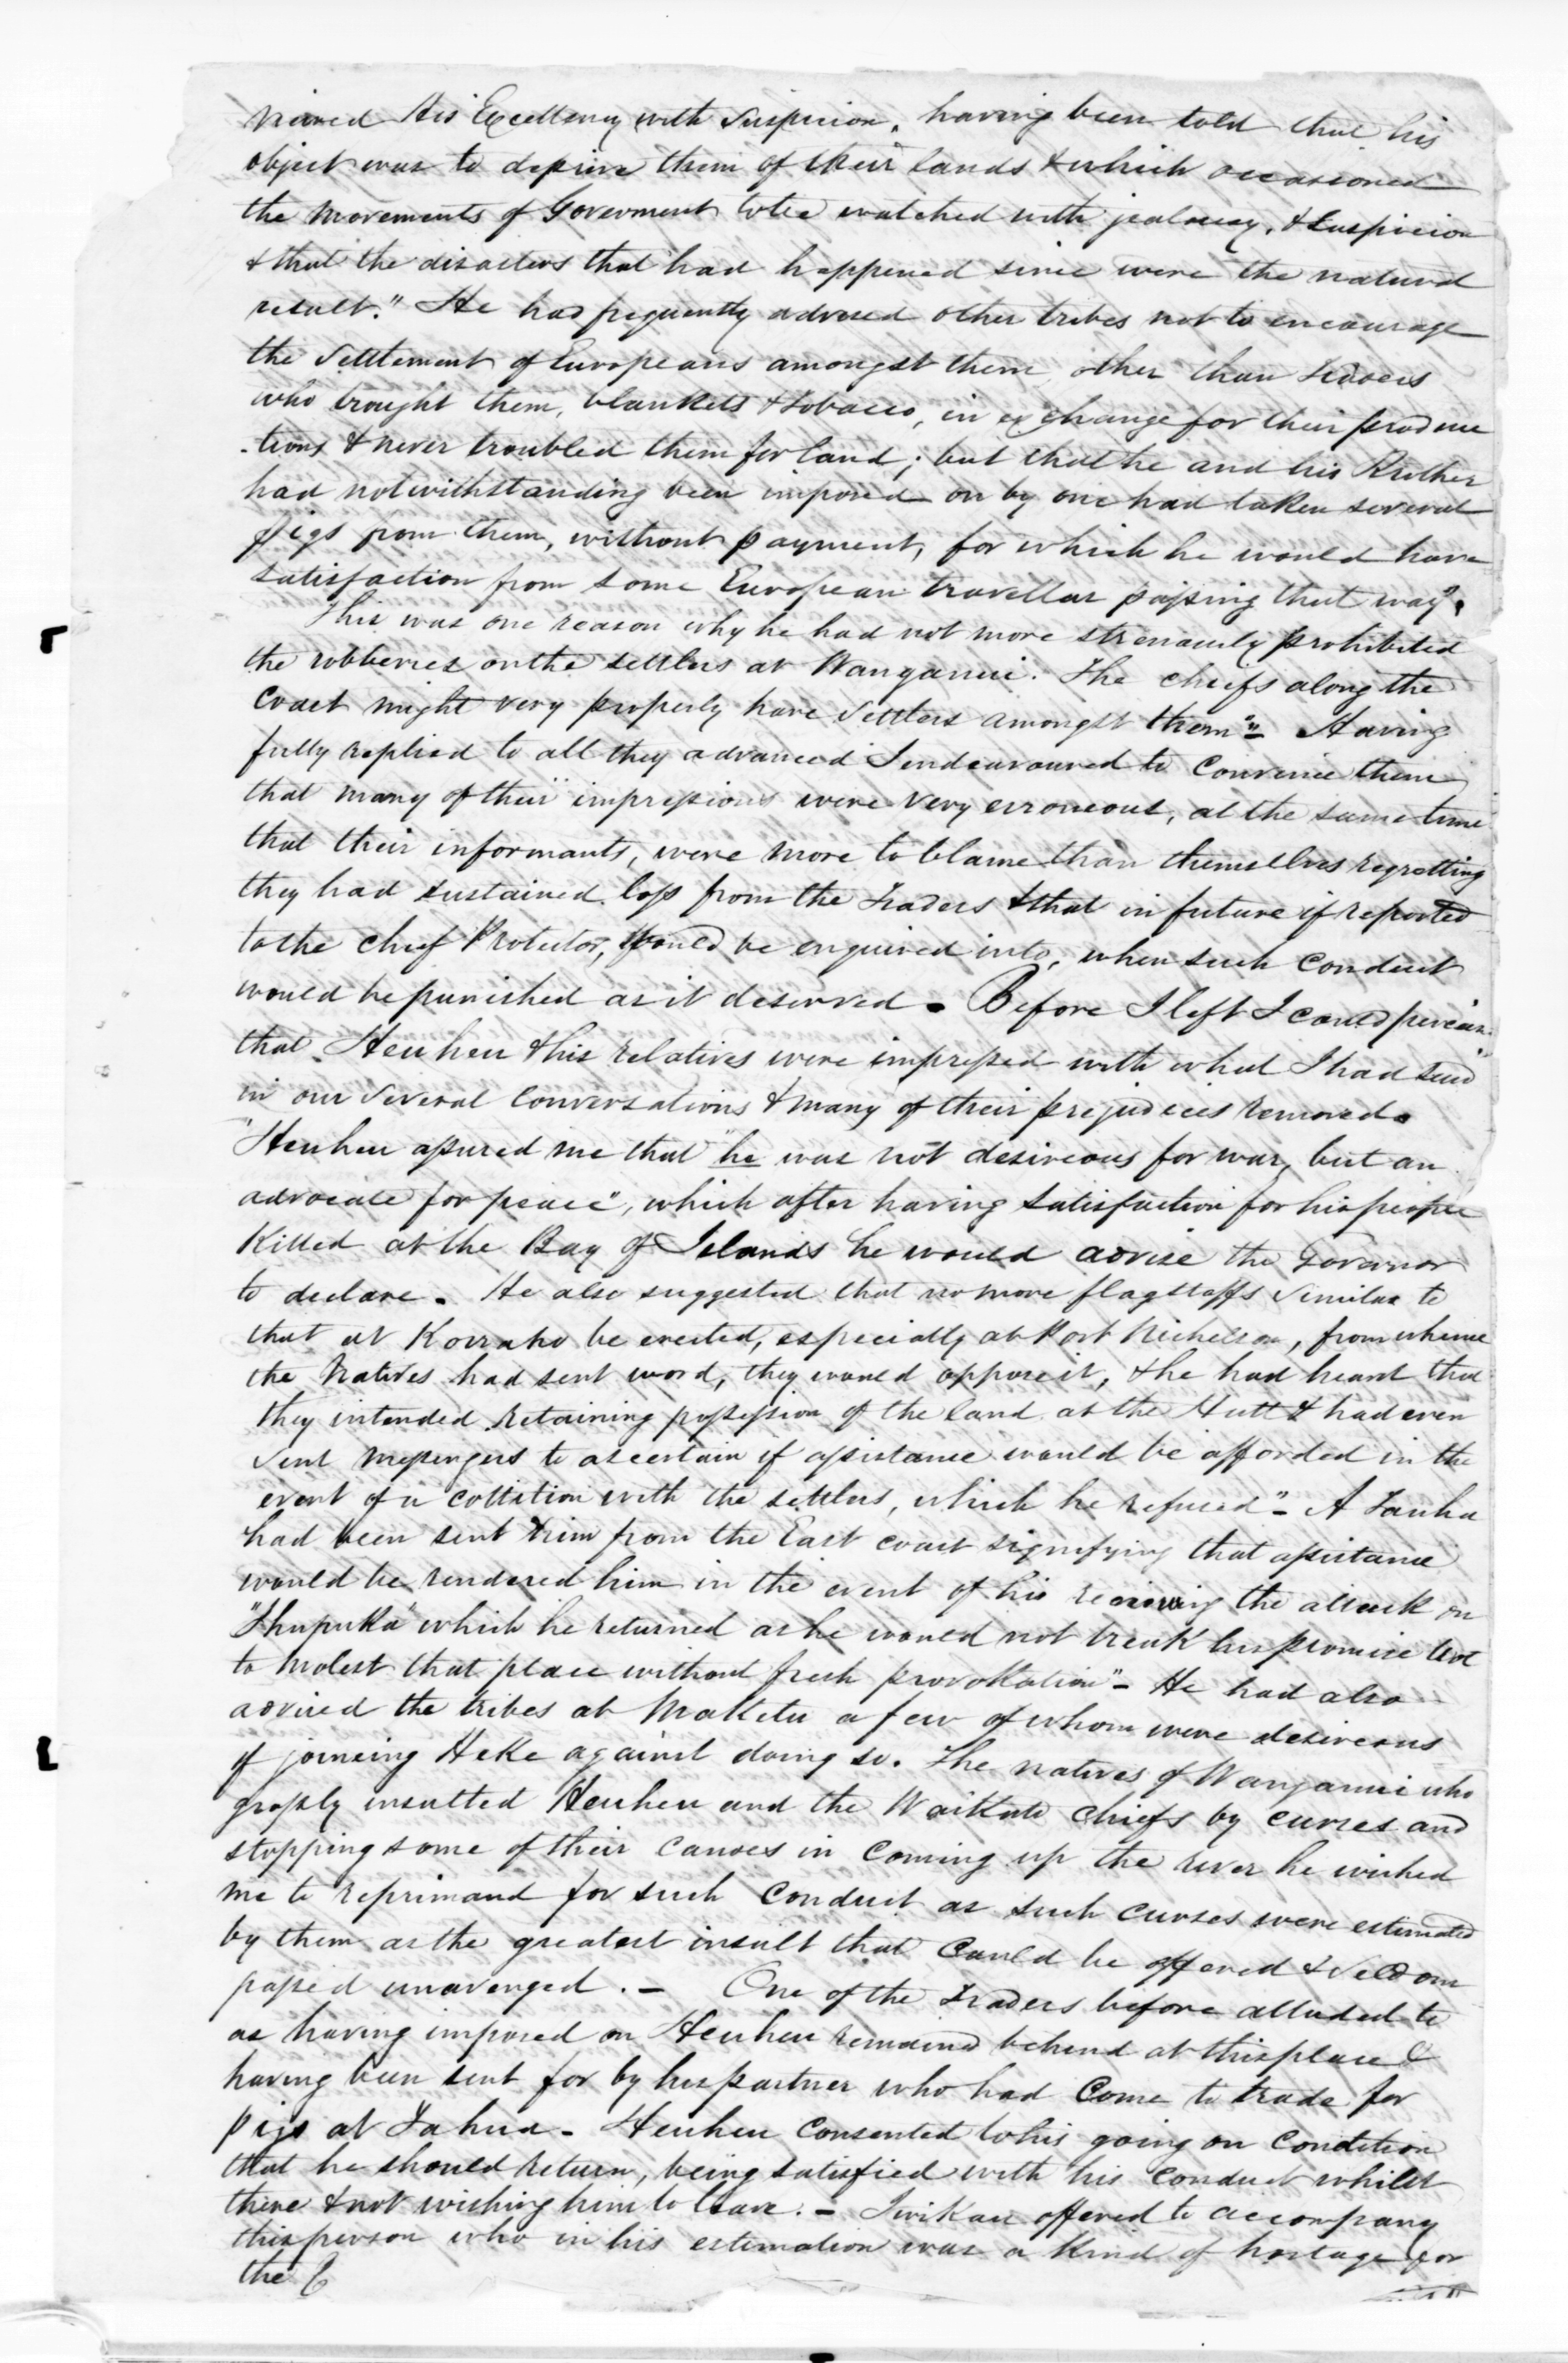 viewed His Excellency with suspicion, having been told that his
object was to deprive them of their lands & which occasioned
the movements of Goverment to be watched with jealousy, & suspicion
& that the disasters that had happened since were the natural
result." He had frequently advised other tribes not to encourage
the settlement of Europeans amongst them, other than Traders
who brought them, blankets & tobacco, in exchange for their produc
-tions & never troubled them for land; but that he and his Brother
had notwithstanding been imposed on by one had taken several
pigs from them, without payment, for which he would have
satisfaction from some European travellar passing that way".
This was one reason why he had not more strenuously prohibited
the robberies on the settlers at Wanganui. The chiefs along the
Coast might very properly have settlers amongst them"- Having
fully replied to all they advanced I endeavoured to convince them
that many of their impressions were very erroneous, at the same time
that their informants, were more to blame than themselves regretting
they had sustained loss from the Traders & that in future if reported
to the chief Protector, would be enquired into, when such conduct
would be punished as it deserved. Before I left I could perceive
that Heuheu & his relatives were impressed with what I had said
in our several conversations & many of their prejudices removed.
"Heuheu assured me that "he was not desireous for war, but an
advocate for peace", which after having satisfaction for his people
Killed at the Bay of Islands he would advise the Governor
to declare. He also suggested that no more flagstaffs similar to
that at Korrako be erected, especially at Port Nicholson, from whence
the Natives had sent word, they would oppose it, & he had heard that
they intended retaining possession of the land at the Hutt & had even
sent messengers to ascertain if assistance would be afforded in the
event of a collition with the settlers, which he refused"- A Tauha
had been sent him from the East coast signifying that assistance
would be rendered him in the event of his the attack on
"Ihupuka" which he returned as he would not break his promise not
to molest that place without fresh provokation"- He had also
advised the tribes at Maketu a few of whom were desireous
of joineing Heke against doing so. The natives of Wanganui who
grossly insulted Heuheu and the Waikato chiefs by curses and
stopping some of their canoes in coming up the river he wished
me to reprimand for such conduct as such curses were estimated
by them as the greatest insult that could be offered & seldom
passed unavenged. - One of the Traders before alluded to
as having imposed on Heuheu remaind behind at this place &
having been sent for by his partner who had come to trade for
pigs at Tahua - Heuheu consented to his going on condition
that he should return, being satisfied with his conduct whilst
there & not wishing him to leave. - Iwikau offered to accompany
this person who in his estimation was a kind of hostage for
the